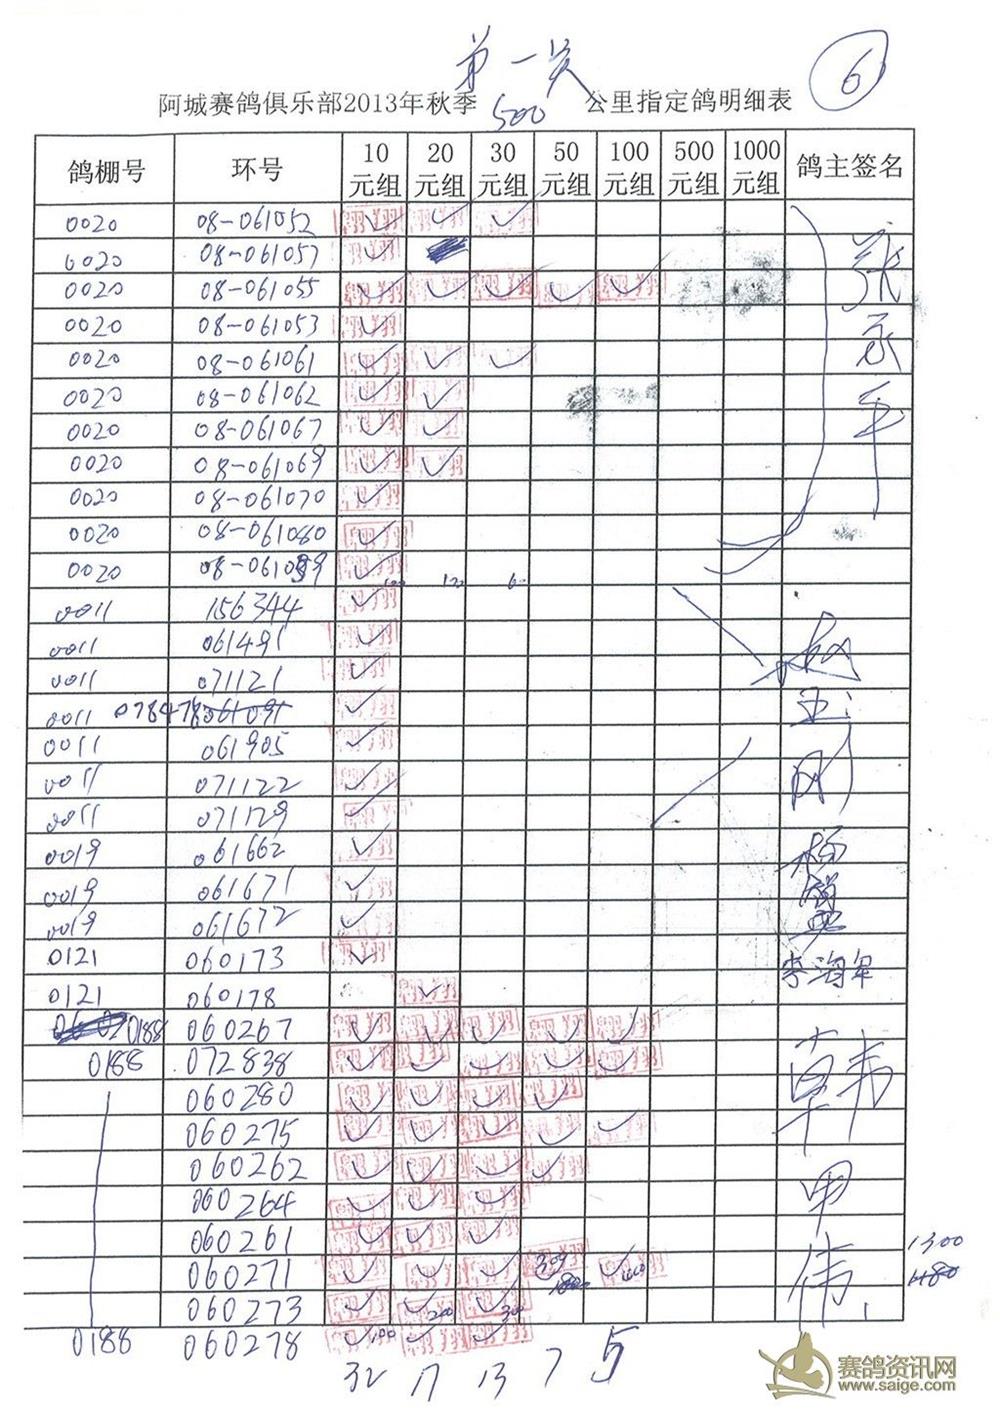 第一关
⑥
阿城赛鸽俱乐部2013年秋季 500 公里指定鸽明细表
鸽棚号 环号 10元组 20元组 30元组 50元组 100元组 500元组 1000元组 鸽主签名
0020 08-061052 ✓ ✓ ✓
0020 08-061057 ✓
0020 08-061055 ✓ ✓ ✓ ✓ ✓
0020 08-061053 ✓
0020 08-061061 ✓ ✓ ✓
0020 08-061062 ✓ ✓
0020 08-061067 ✓ ✓
0020 08-061069 ✓ ✓
0020 08-061070 ✓
0020 08-061080 ✓
0020 ✓
0011 156344 ✓
0011 061491 ✓
0011 071121 ✓
0011 ✓
0011 061905 ✓
0011 071122 ✓
0011 071129 ✓
0019 061662 ✓
0019 061671 ✓
0019 061672 ✓
0121 060173 ✓ 李海军
0121 060178 ✓
0188 060267 ✓ ✓ ✓ ✓ ✓
0188 072838 ✓ ✓ ✓ ✓ ✓
060280 ✓ ✓ ✓ ✓
060275 ✓ ✓ ✓ ✓ ✓
060262 ✓ ✓ ✓ ✓
060264 ✓ ✓ ✓
060261 ✓ ✓ ✓
060271 ✓ ✓ ✓ ✓ 1300
060273 ✓ ✓ ✓
0188 060278 ✓ ✓ ✓
32 17 13 7 5
赛鸽资讯网
www.saige.com